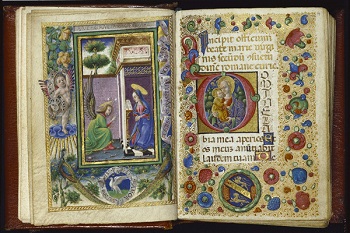 Incipit officium
beate marie virgi
nis secundū ɔsuetu
dinē romane curie.
D
O
M
I
N
E
bia mea aperies
os meū anūtiabit
laudem tuam